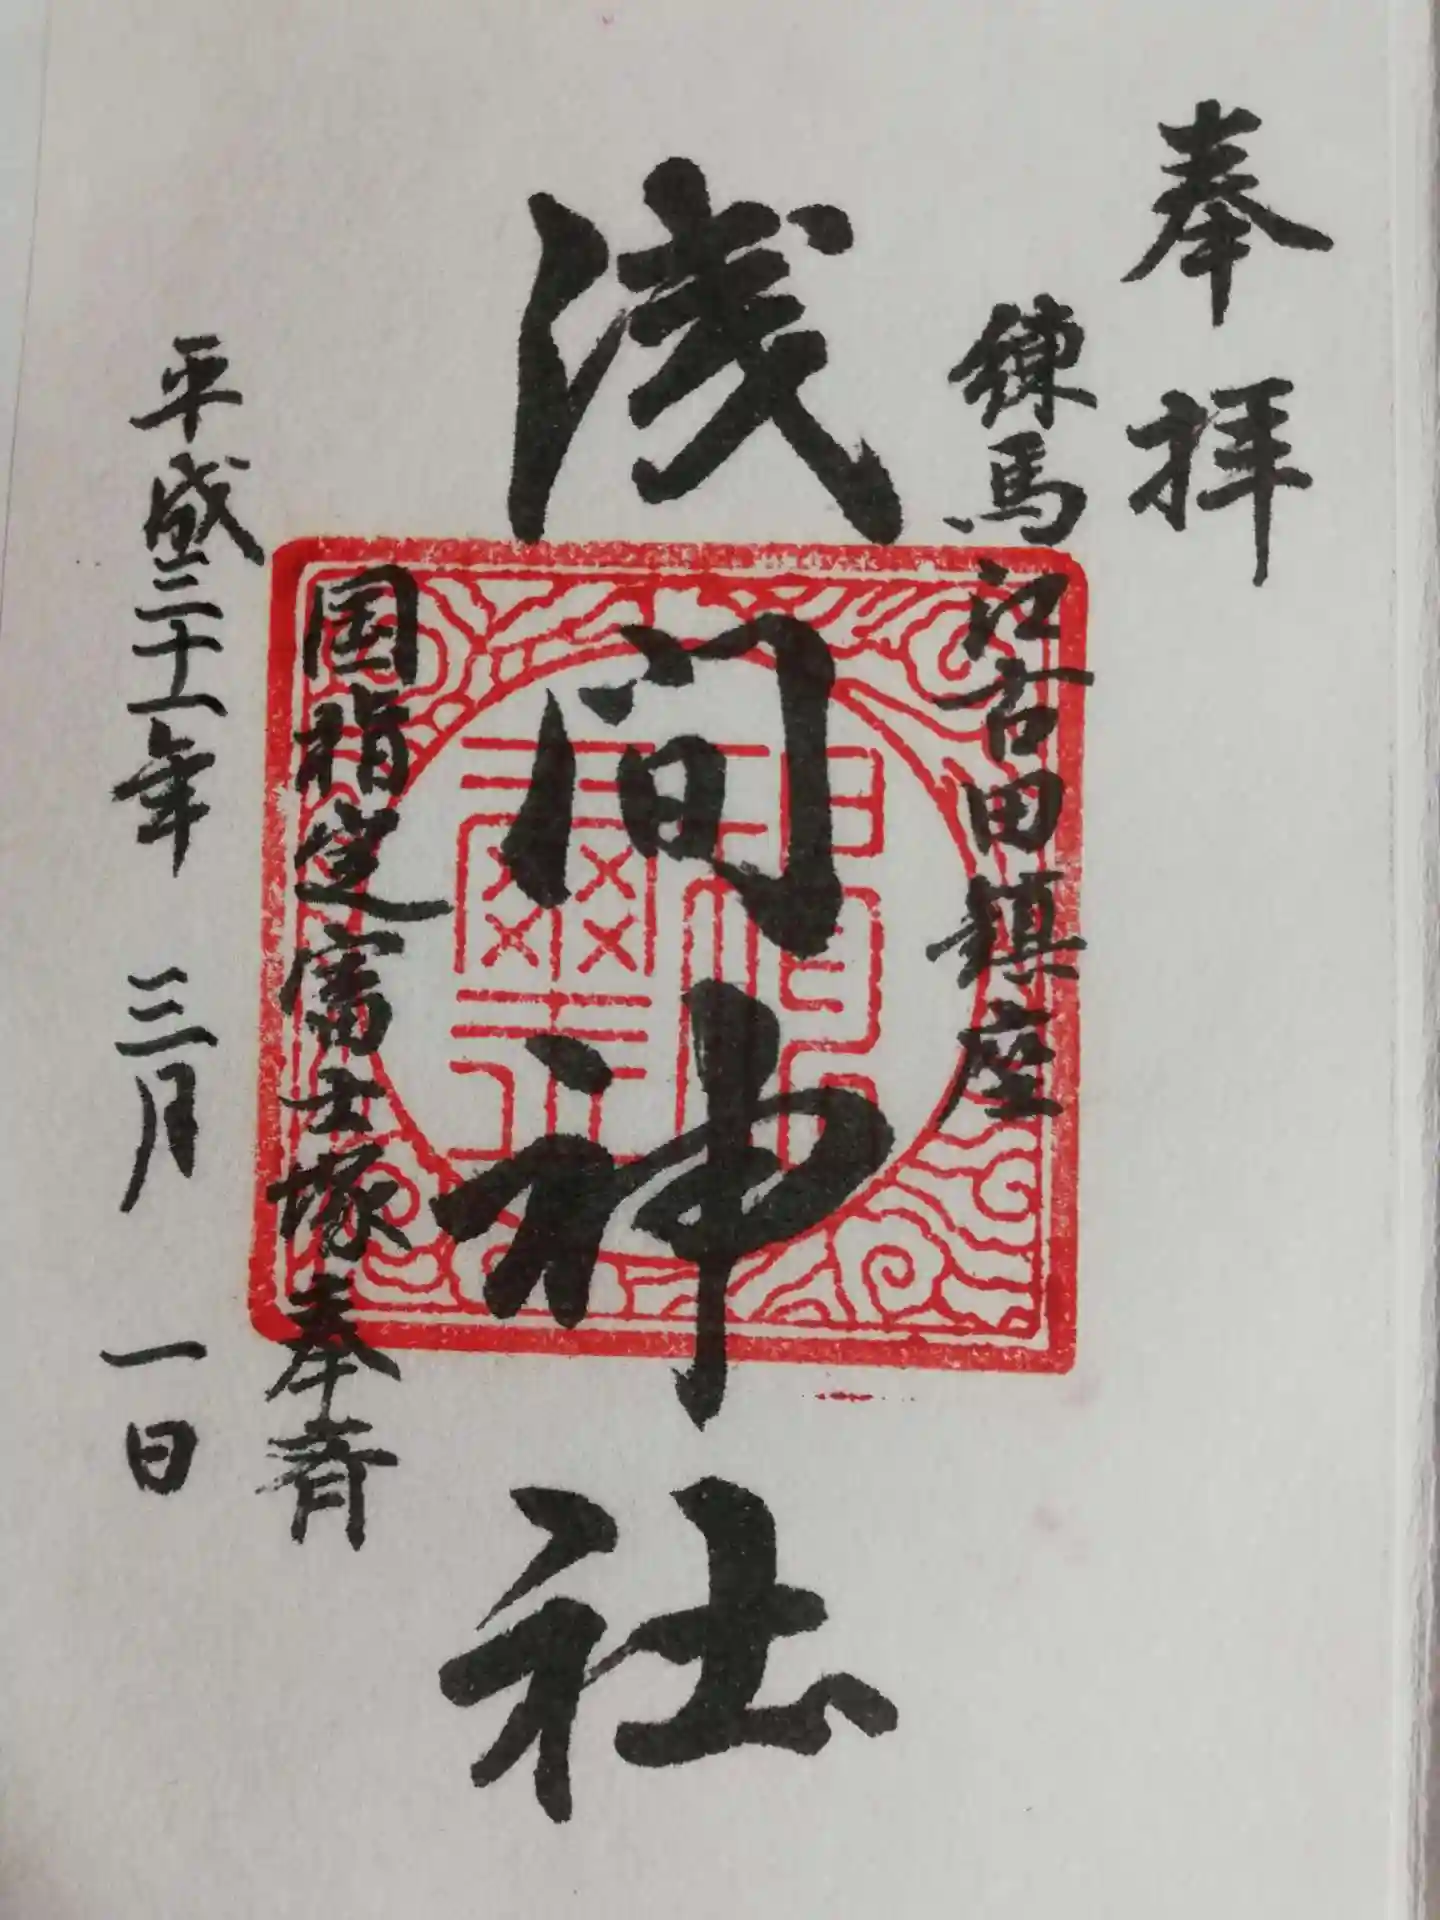 奉拝
練馬江古田鎮座
浅间神社
国指定富士塚奉斎
平成三十一年 三月 一日